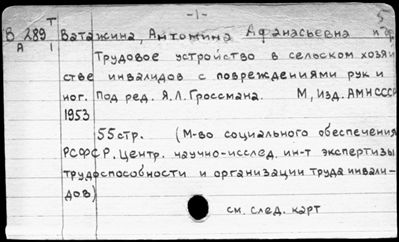 -1-
5
Т
В 289 Ватажина, Антонина Афанасьевна и др.
А 1
Трудовое устройство в сельском хозяй
стве инвалидов с повреждениями рук и
ног. Под ред. Я.Л. Гроссмана. М, Изд. АМН СССР
1953
55 стр. (М-во социального обеспечения
РСФСР. Центр. научно-исслед. ин-т экспертизы
трудоспособности и организации труда инвали-
дов)
см. след. карт